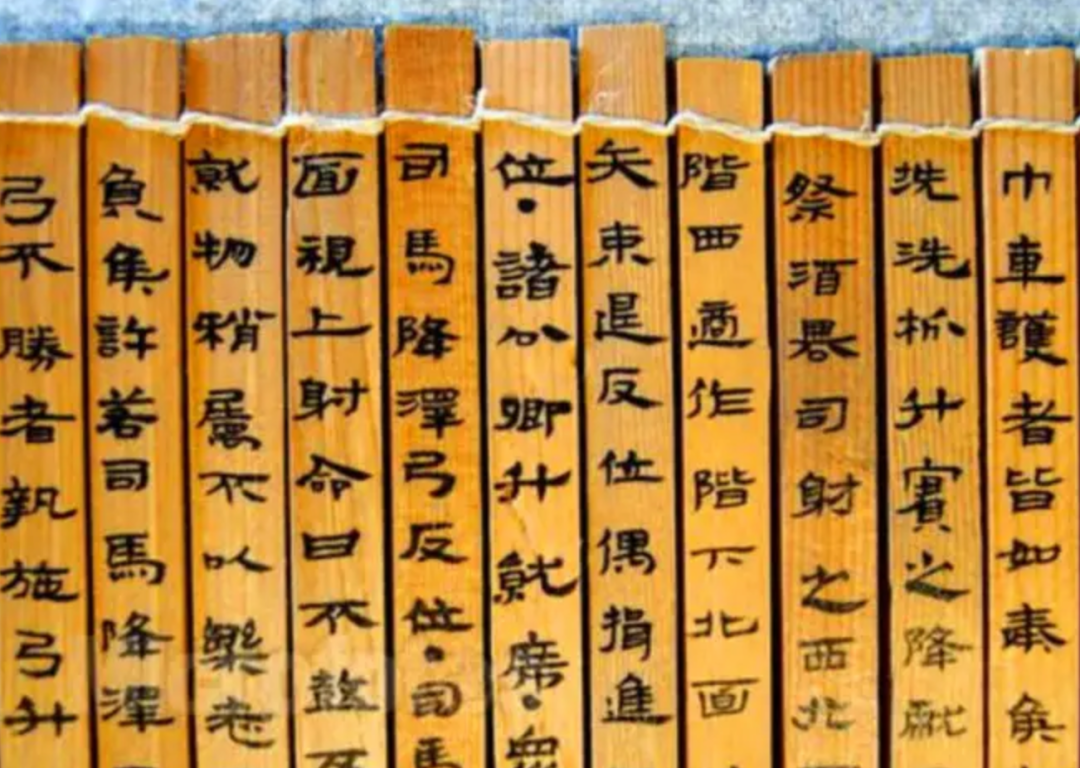 巾車護者皆如奏矦
洗洗柧升實之降
祭酒司射之西北
階西適作階下北面
矢東退反位偶揖進
位·諸公卿升就席·眾
司馬降澤弓反位·司馬
面視上射命曰不鼓不
就物稍屬不以樂志
負矦許若司馬降澤
弓不勝者執施弓升